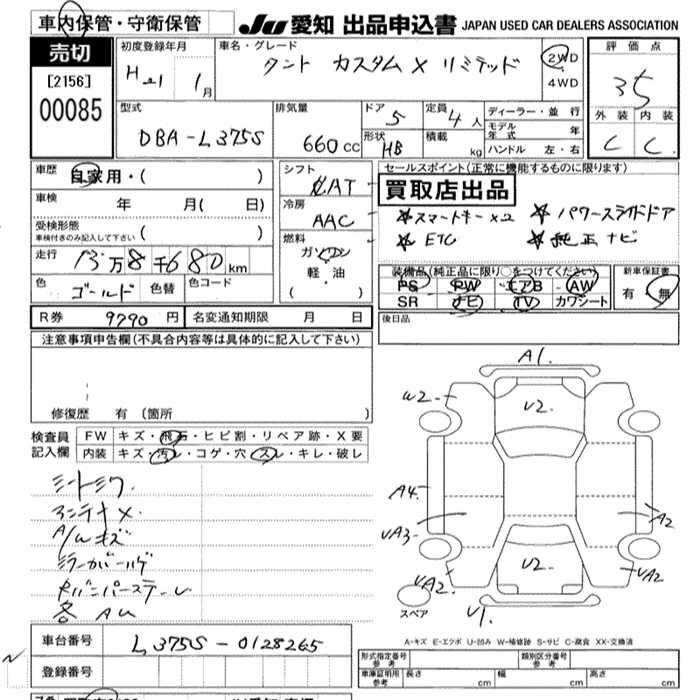 車内保管・守衛保管
JU 愛知 出品申込書 JAPAN USED CAR DEALERS ASSOCIATION
売切
[2156]
00085
初度登録年月
H21 1月
車名・グレード
タント カスタム X リミテッド
2WD
4WD
評価点
3.5
外装 内装
C C
型式
DBA-L375S
排気量
660cc
ドア 5
形状 HB
定員 4人
積載 kg
ディーラー・並行
モデル年式 年
ハンドル 左・右
車歴
自家用・( )
車検 年 月( 日)
受検形態
車検付きのみ記入して下さい ( )
走行 13万8千680km
色 ゴールド 色替 色コード
シフト
AT
冷房
AAC
燃料
ガソリン
軽・油
( ・ )
セールスポイント(正常に機能するものに限ります)
買取店出品
スマートキー×2 パワースライドドア
ETC 純正ナビ
装備品(純正品に限り○をつけてください)
PS PW エアB AW
SR ナビ TV カワシート
新車保証書
有・無
R券 9790円 名変通知期限 月 日
後日品
注意事項申告欄(不具合内容等は具体的に記入して下さい)
修復歴 有 (箇所 )
検査員記入欄
FW キズ・飛石・ヒビ割・リペア跡・X要
内装 キズ・汚レ・コゲ・穴・スレ・キレ・破レ
シートシワ
アンテナ×
A/Wキズ
ミラーカバーハゲ
各AU
A1
W2
U2
A4
A2
UA3
UA2
U2
UA2
U1
スペア
A-キズ E-エクボ U-凹み W-補修跡 S-サビ C-腐食 XX-交換済
車台番号 L375S-0128265
登録番号
形式指定番号 参考
類別区分番号 参考
車庫証明用 参考 長さ cm 幅 cm 高さ cm